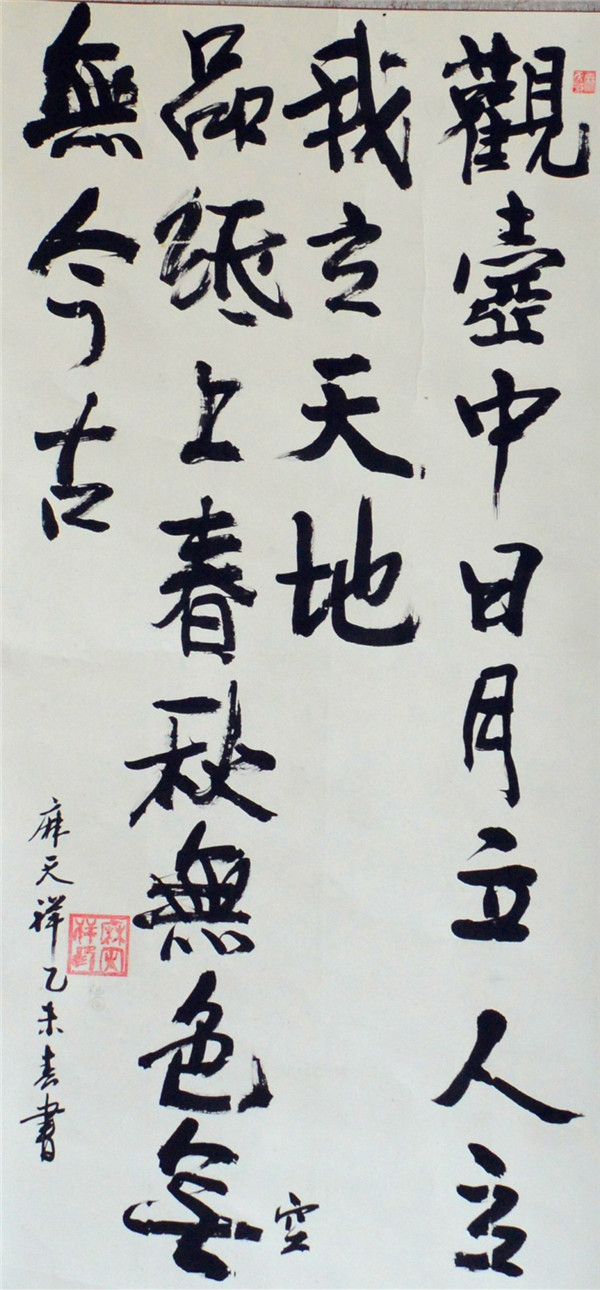 觀壺中日月立人立
我立天地
品紙上春秋無色無空
無今古
麻天祥乙未春書